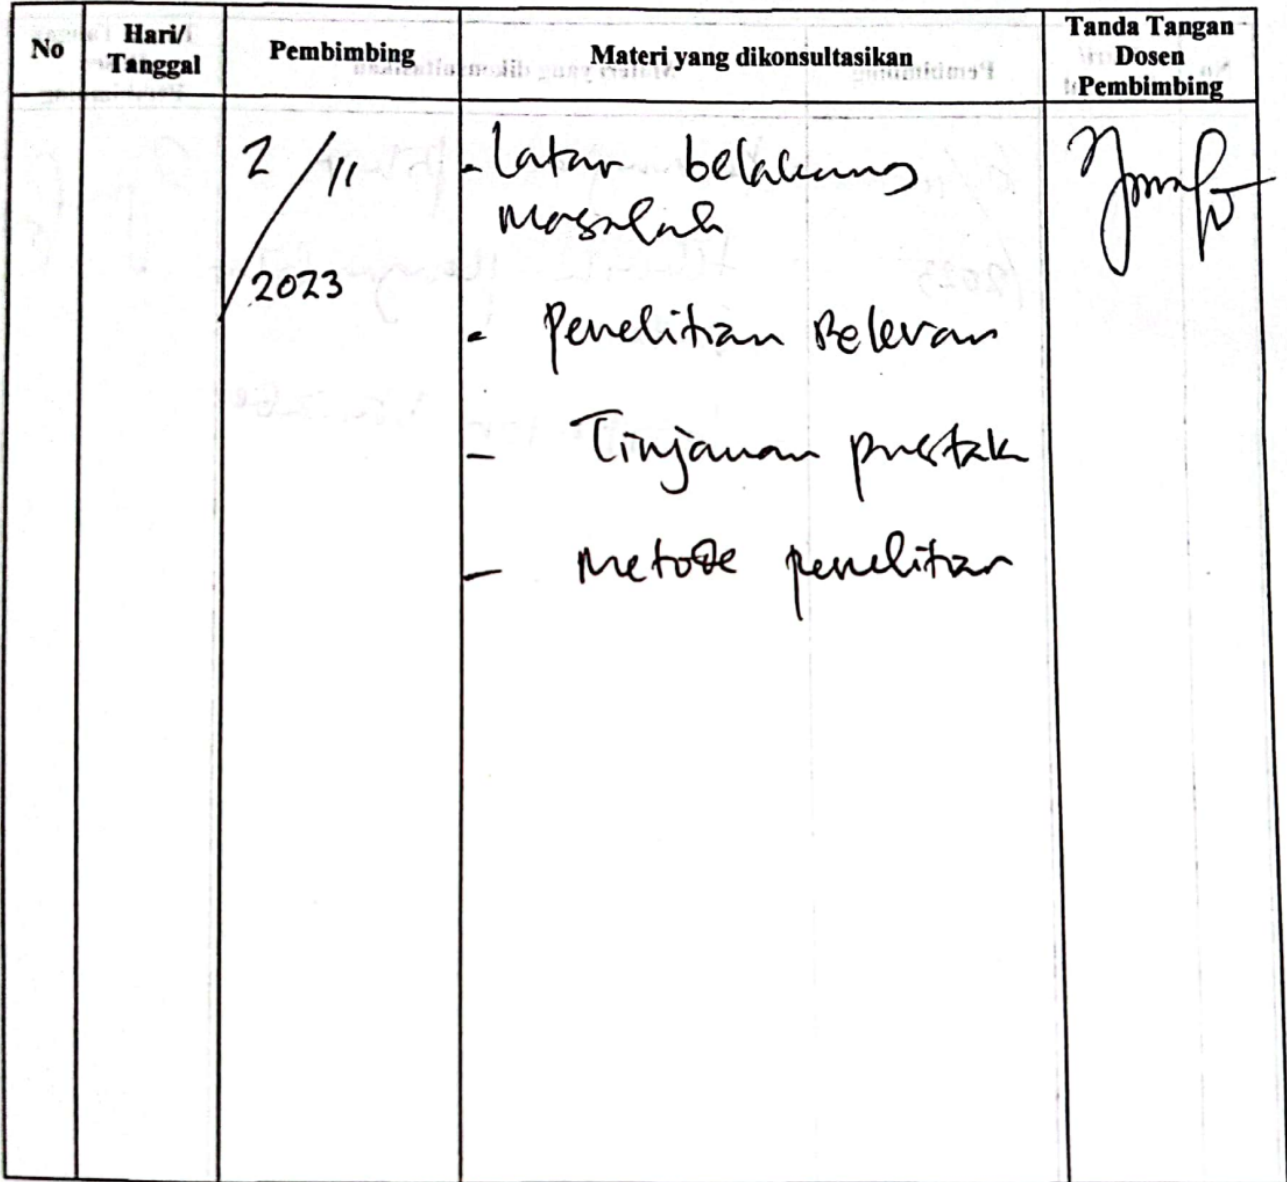 No
Hari/
Tanggal
Pembimbing
Materi yang dikonsultasikan
Tanda Tangan
Dosen
Pembimbing
2/11
/2023
- Latar belakang
masalah
- Penelitian Relevan
- Tinjauan pustak
- Metode penelitian